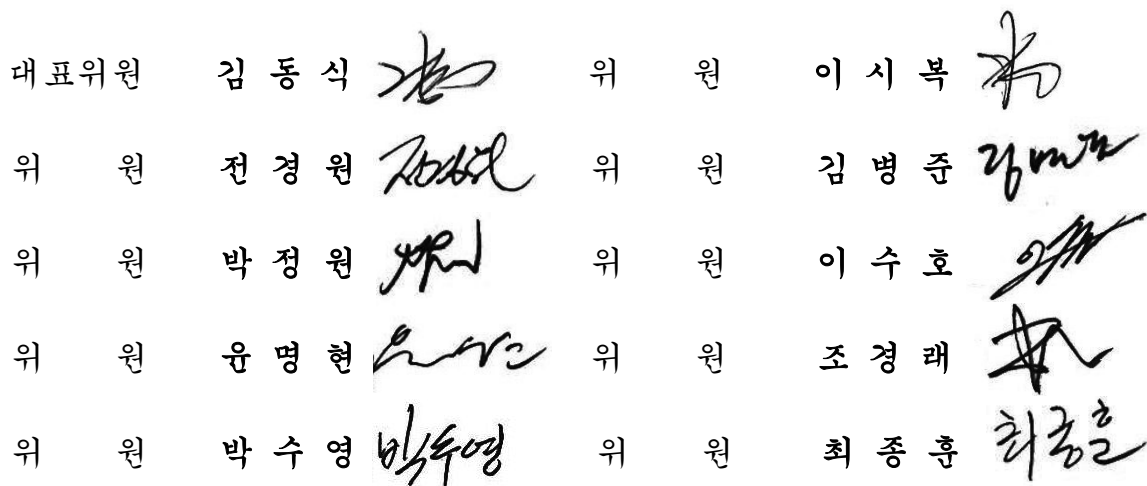 대표위원 김동식 위 원 이시복
위 원 전경원 위 원 김병준
위 원 박정원 위 원 이수호
위 원 윤명현 위 원 조경래
위 원 박수영 박수영 위 원 최종훈 최종훈